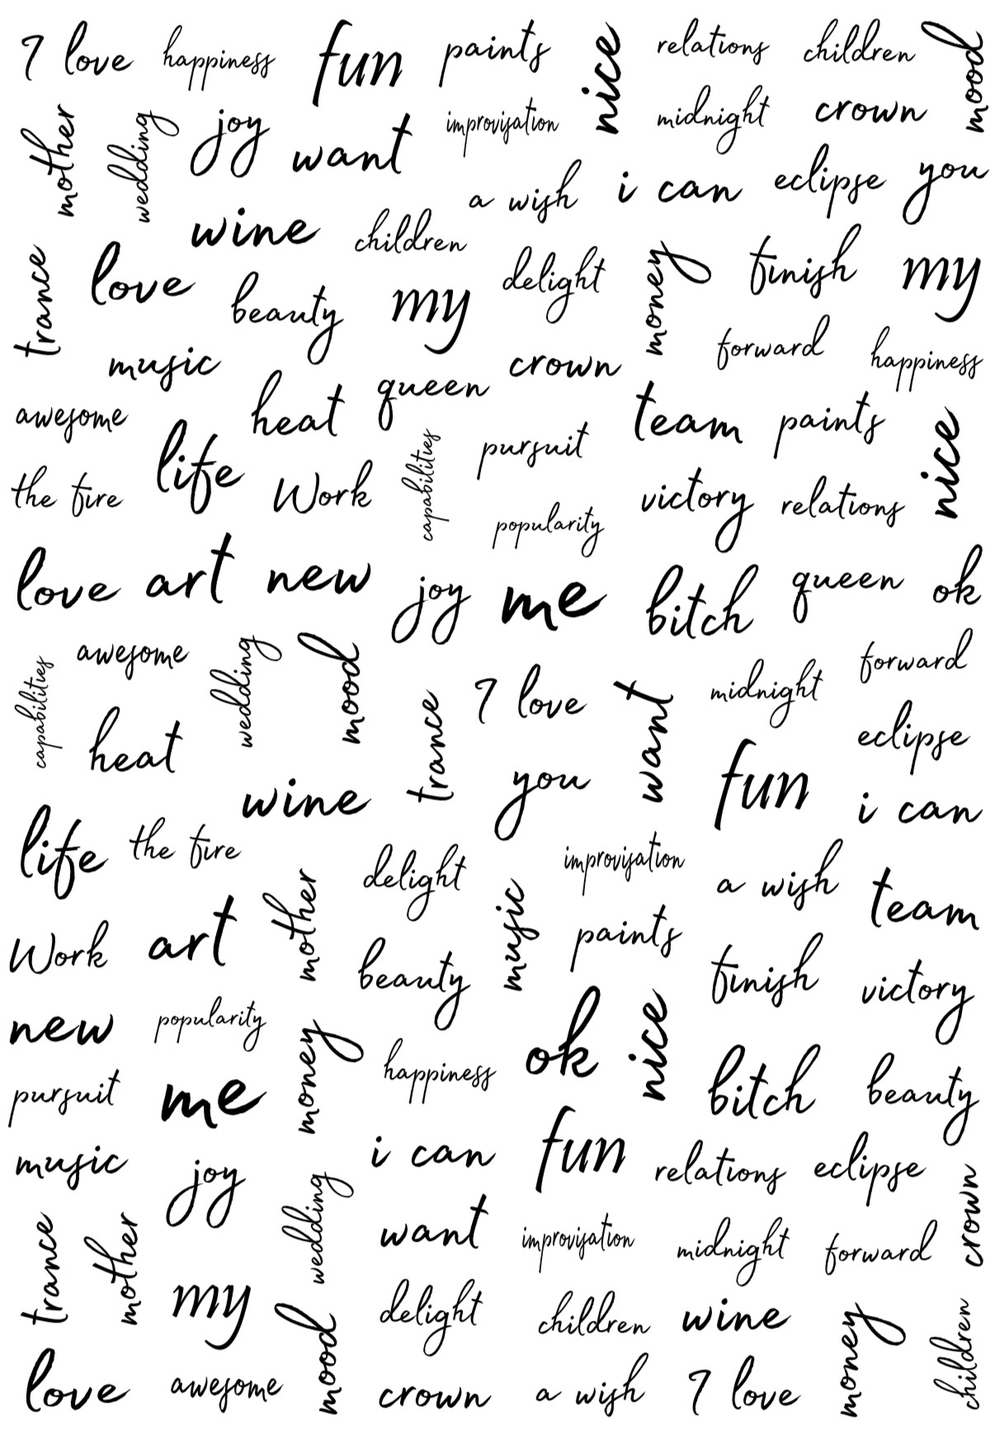 I love happiness fun paints nice relations children mood
mother wedding joy want improvisation midnight crown
a wish i can eclipse you
wine children
trance love beauty my delight money finish my
music queen crown forward happiness
awesome heat team paints nice
the fire life Work capabilities pursuit victory relations
popularity
love art new joy me bitch queen ok
capabilities awesome wedding mood forward
heat trance I love want midnight eclipse
wine you fun i can
life the fire delight improvisation a wish team
Work art mother beauty music paints finish victory
new popularity money happiness ok nice bitch beauty
pursuit me
music joy i can fun relations eclipse crown
trance mother wedding want improvisation midnight forward
my mood delight children wine money children
love awesome crown a wish I love